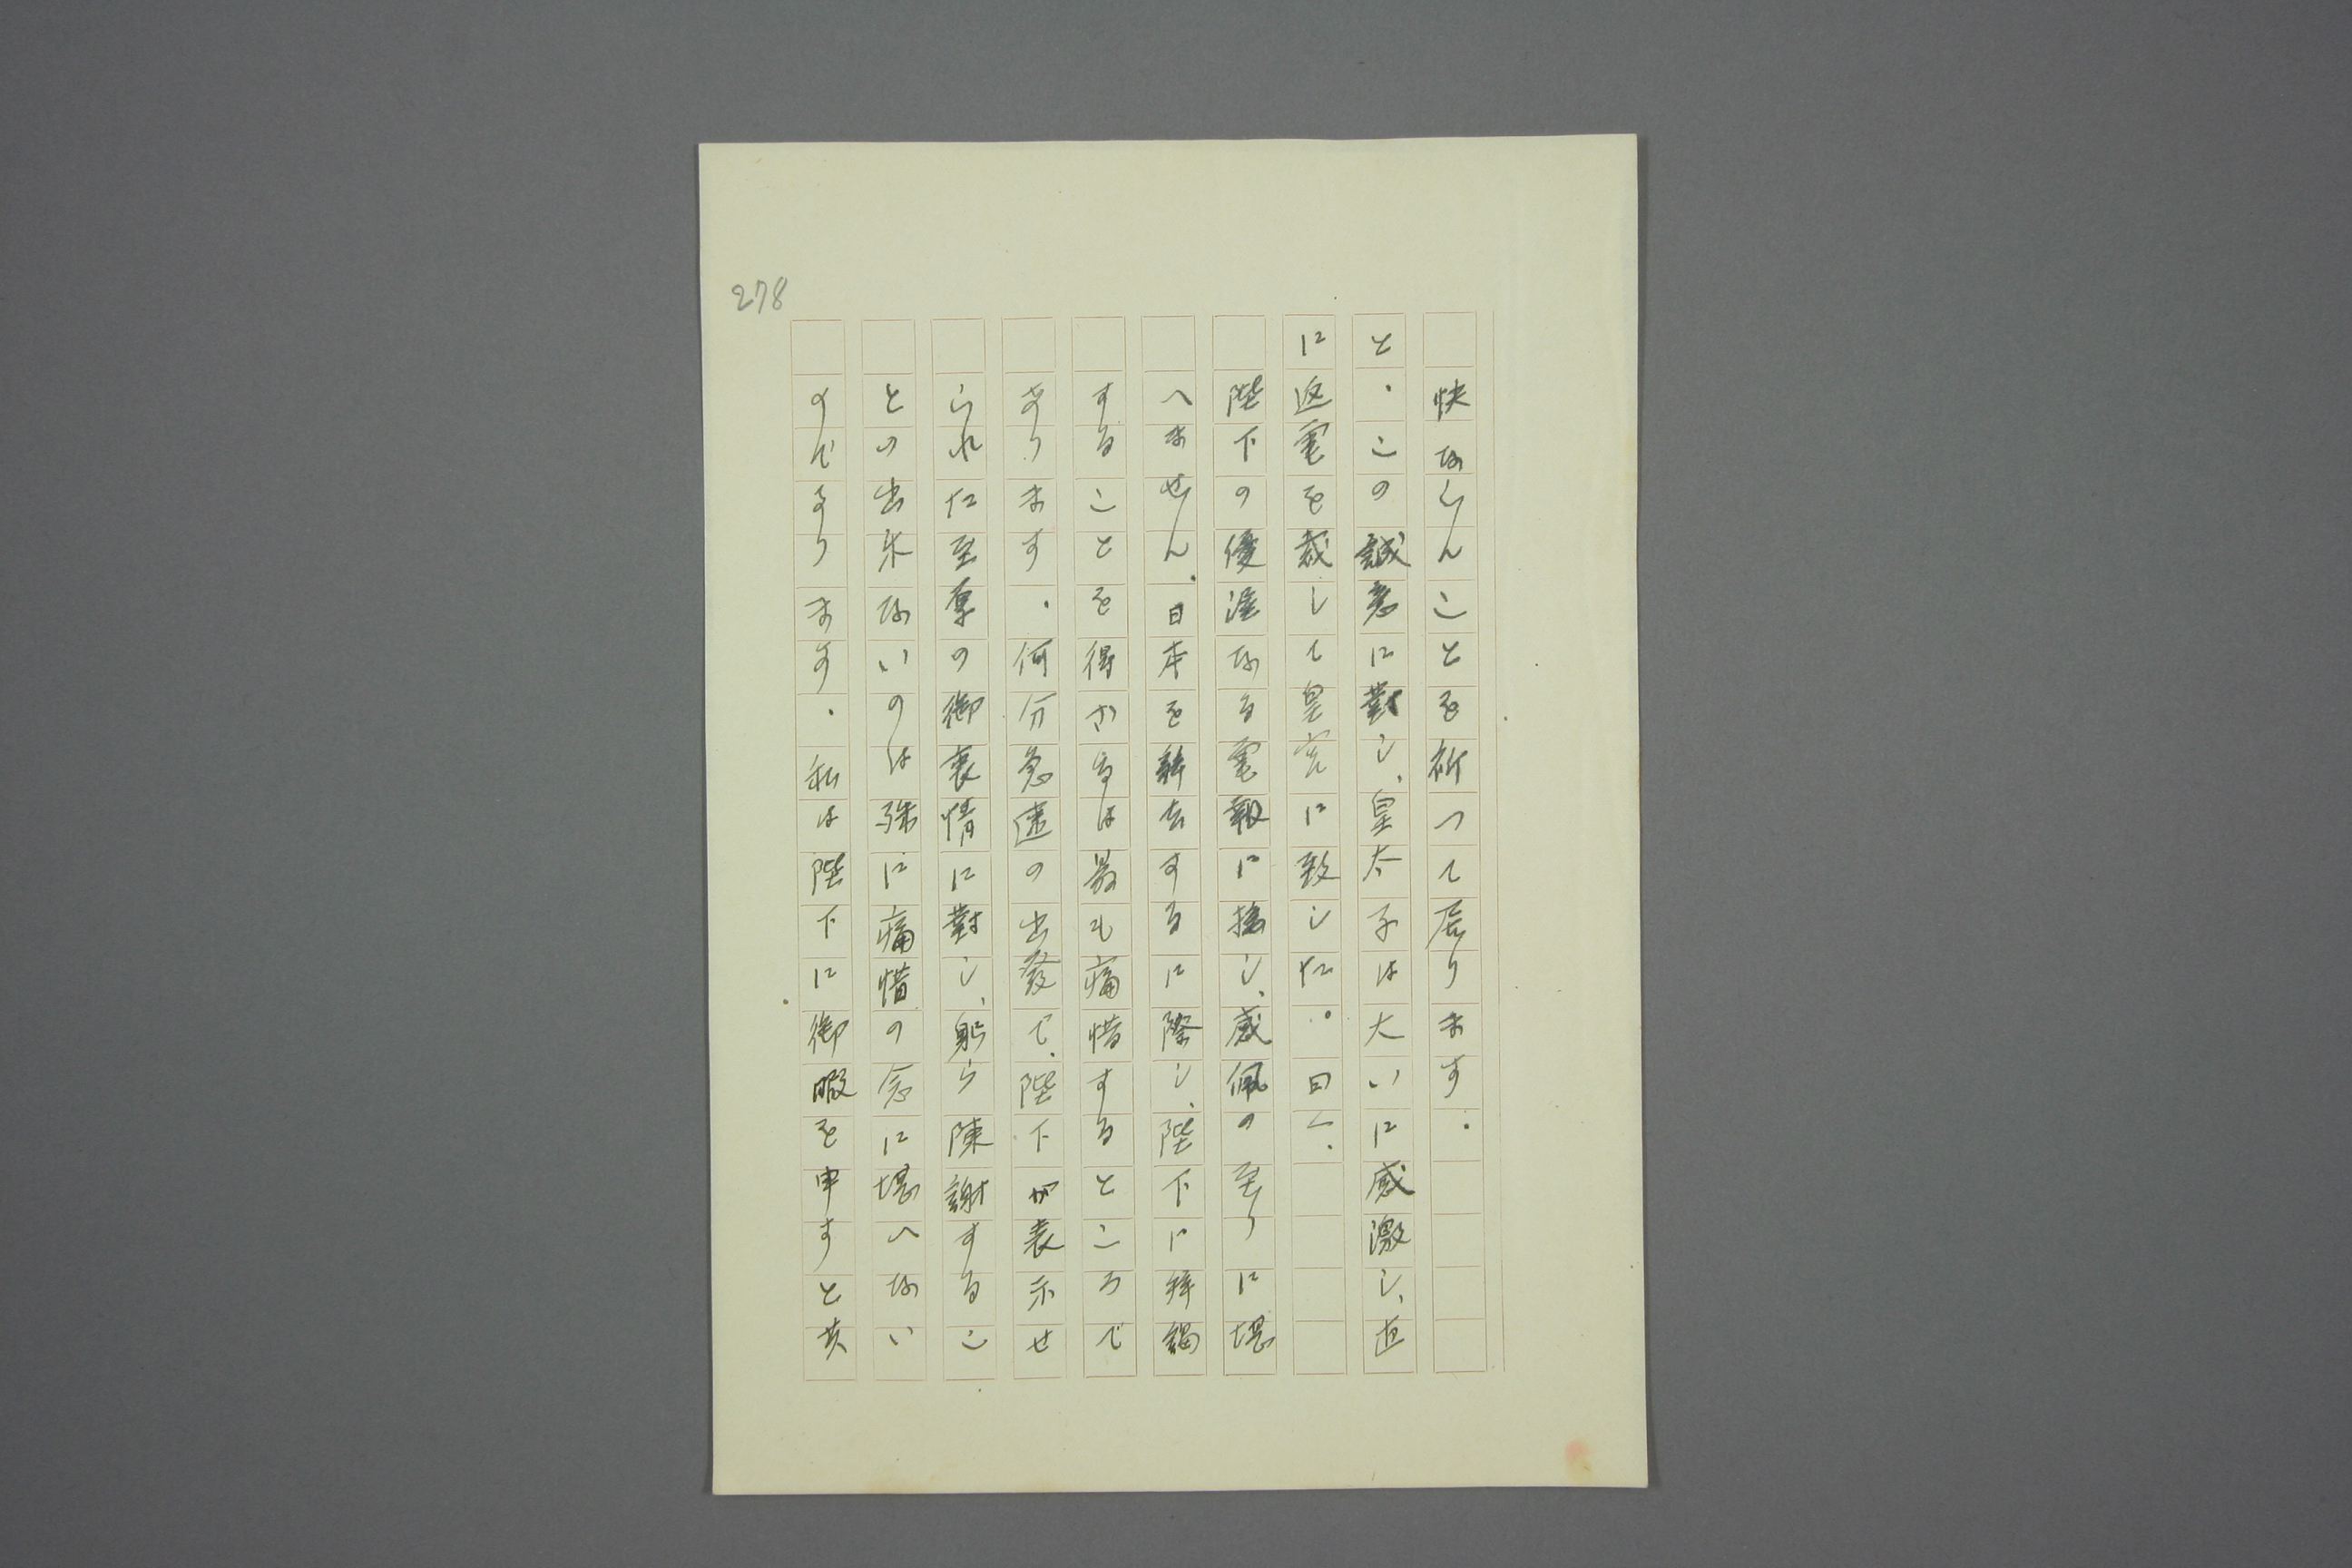 278
快ならんことを祈つて居ります．
と．この誠意に對し、皇太子は大いに感激し、直
に返電を裁して皇宮に致した．曰く．
陛下の優渥なる電報に接し、感佩の至りに堪
へません．日本を辭去するに際し、陛下に拜謁
することを得ざるは最も痛惜するところで
あります．何分急遽の出發で、陛下が表示せ
られた至厚の御衷情に對し、躬ら陳謝するこ
との出来ないのは殊に痛惜の念に堪へない
のであります．私は陛下に御暇を申すと共